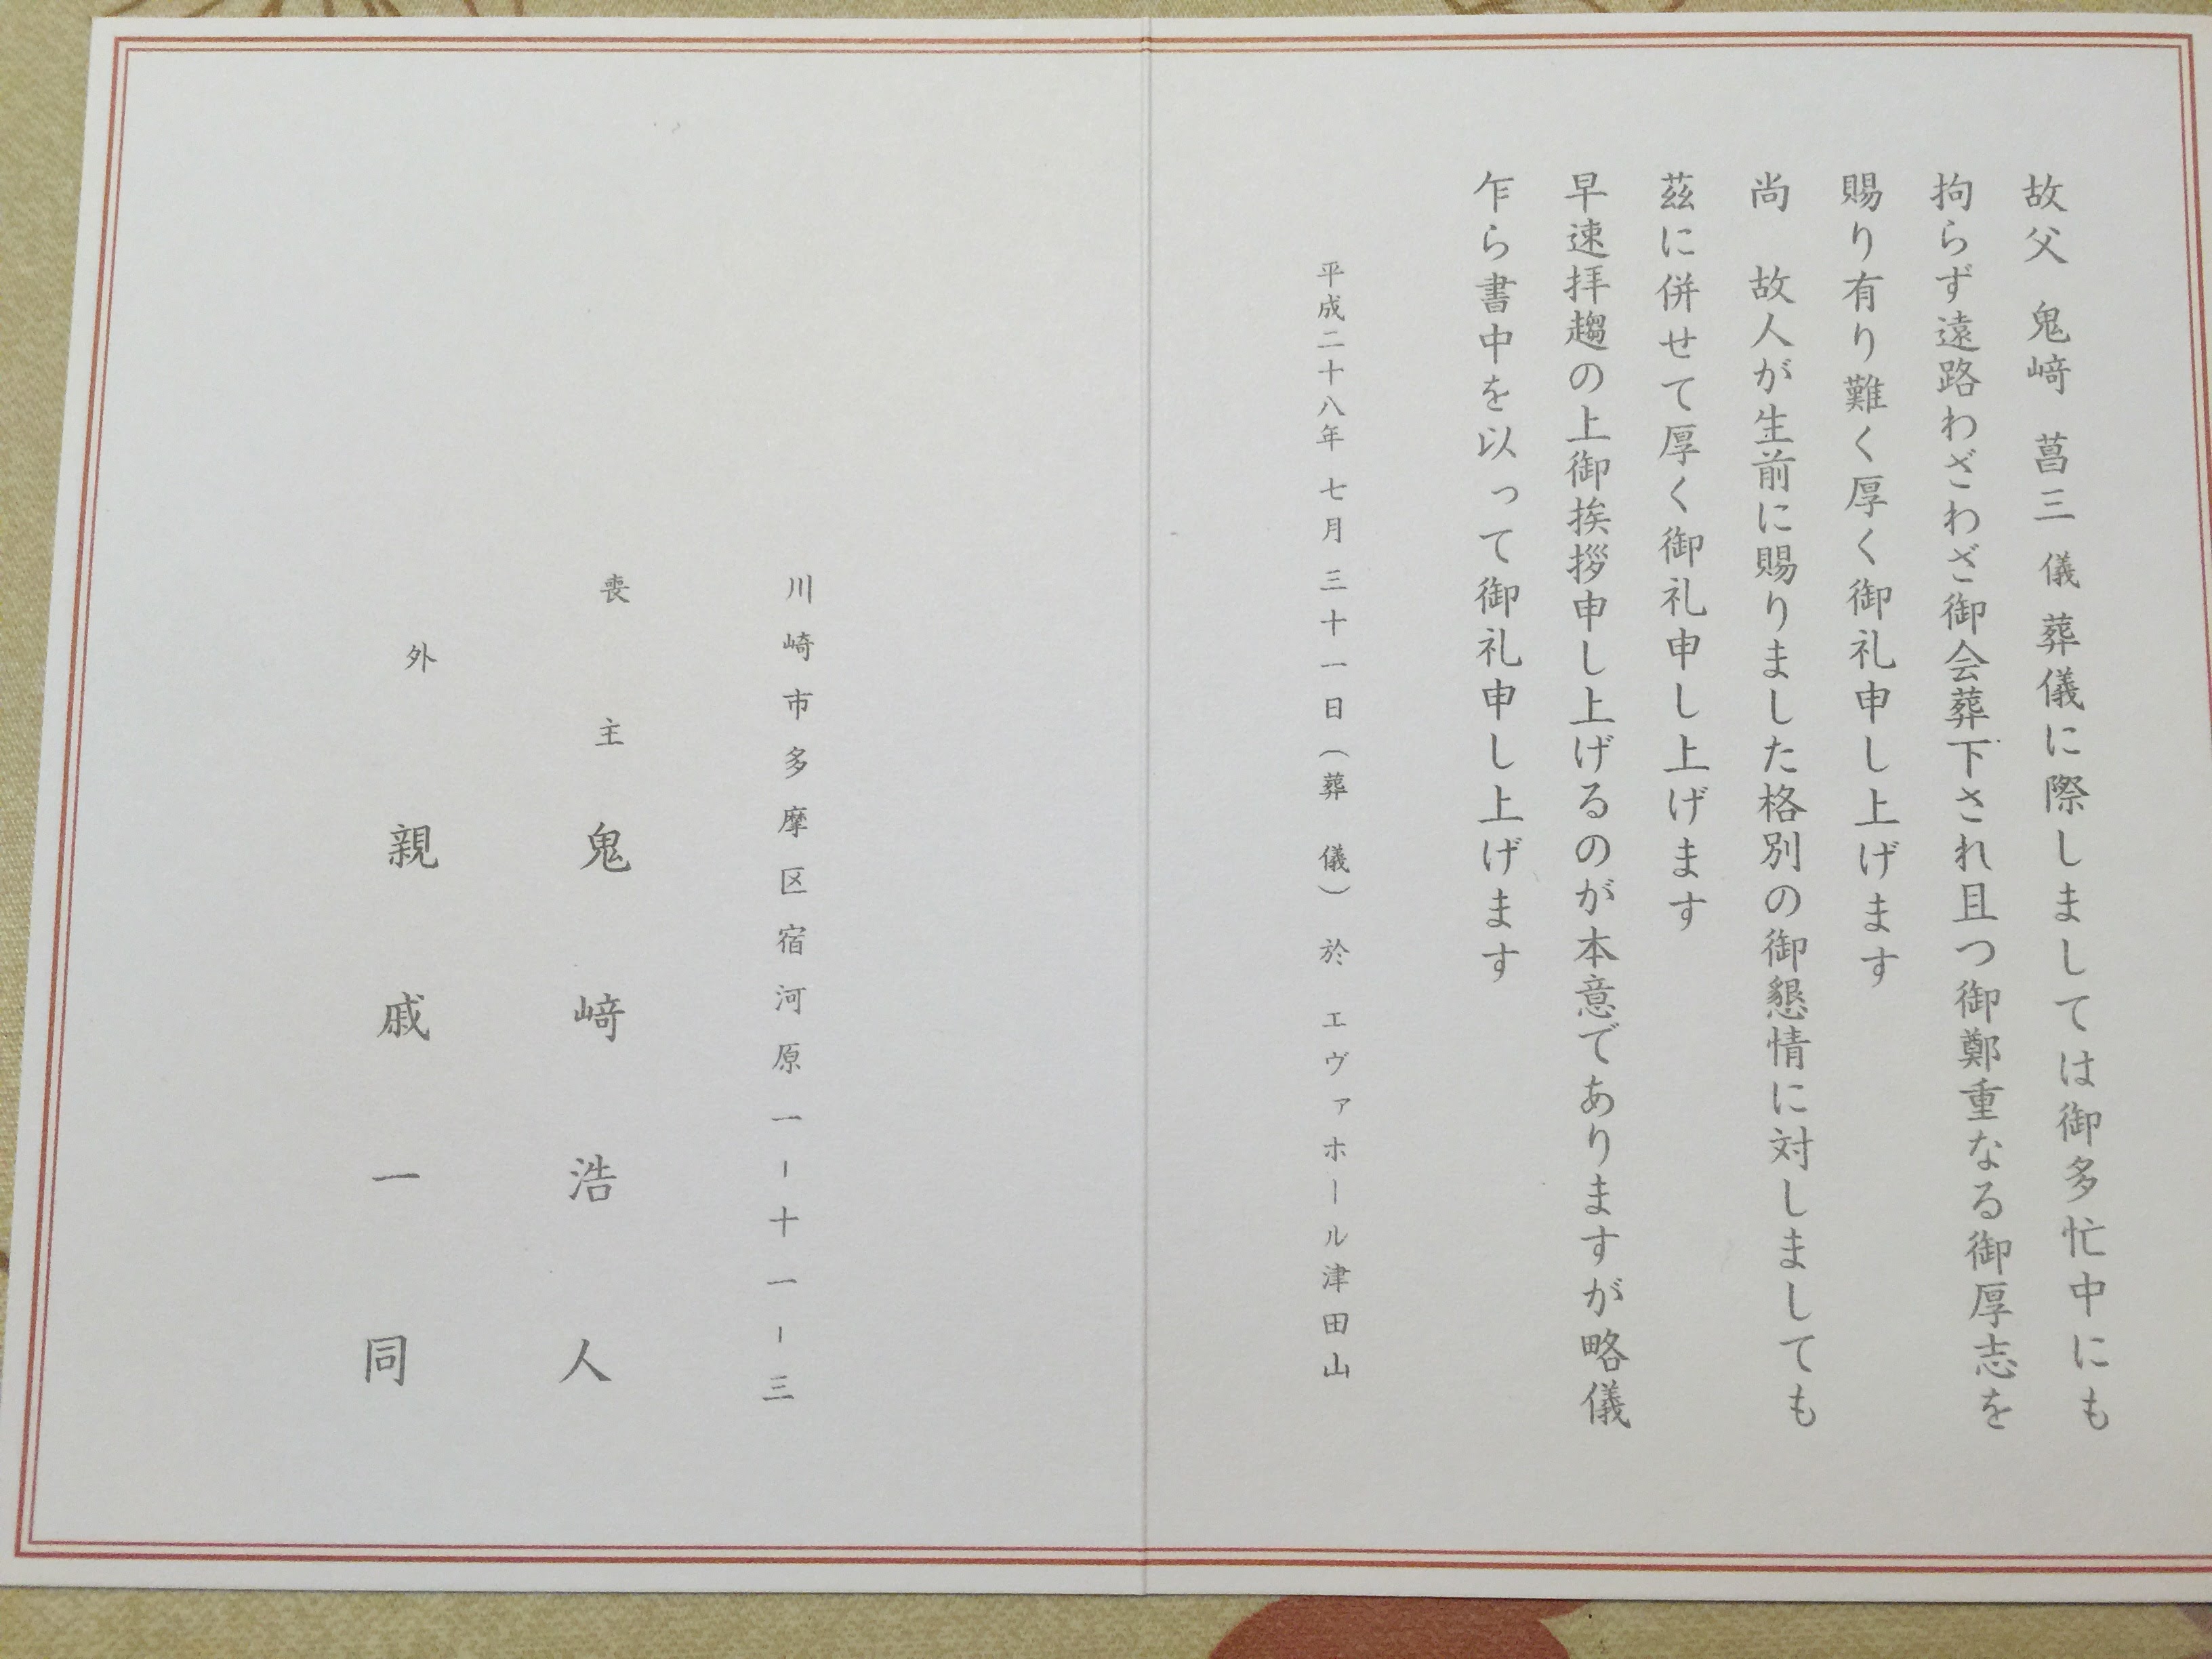 故父　鬼﨑　菖三　儀　葬儀に際しましては御多忙中にも
拘らず遠路わざわざ御会葬下され且つ御鄭重なる御厚志を
賜り有り難く厚く御礼申し上げます
尚　故人が生前に賜りました格別の御懇情に対しましても
茲に併せて厚く御礼申し上げます
早速拝趨の上御挨拶申し上げるのが本意でありますが略儀
乍ら書中を以って御礼申し上げます
平成二十八年　七月　三十一日（葬　儀）　於　エヴァホール津田山
川崎市多摩区宿河原一－十一－三
喪　主　鬼　﨑　浩　人
外　親　戚　一　同